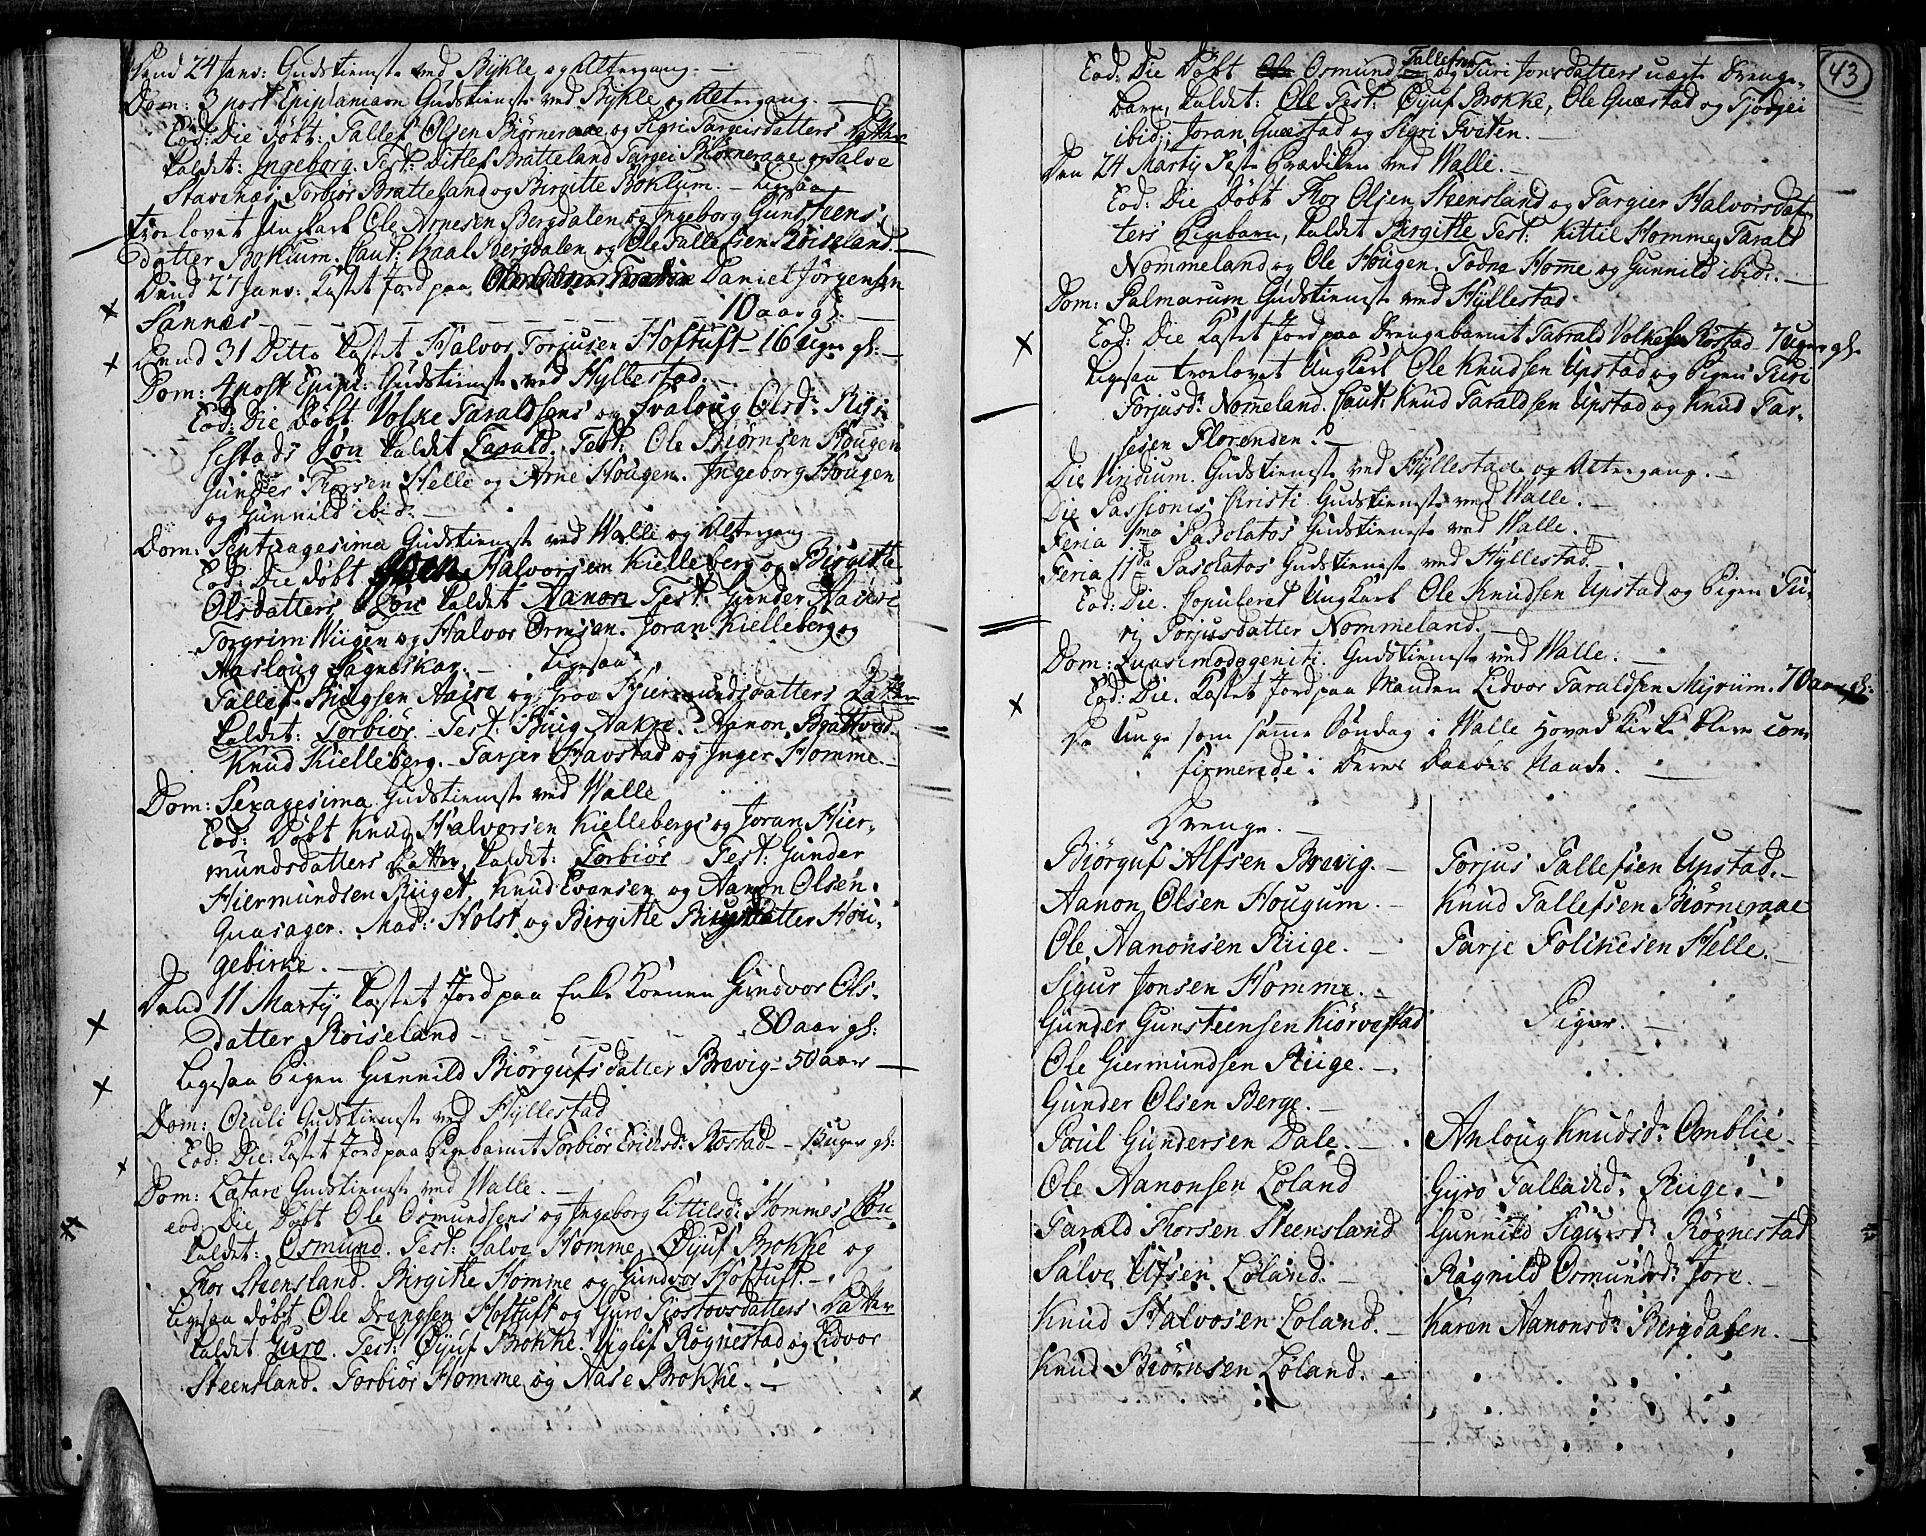 Dend 24 Janv: Gudstienest ved Bykle og Altergang. —
Dom: 3 post Epiphaniam Gudstieneste ved Bykle og Altergang. —
Eod: Die døbt: Tallef Olsen Biørneraae og Sigri Targeisdatters Datter
kaldet: Ingeborg. Test: Ditlef Bratteland Targei Biørneraae og Salve
Stavenæs, Torbiør Bratteland og Birgitte Boklum. — Ligesaa
troelovet Ungkarl Ole Arnesen Bergdalen og Ingeborg Gunsteens
datter Boklum. Caut: Paal Bergdalen og Ole Tallefsen Roiseland. —
Dend 27 Janv: Kastet Jord paa Daniel Jörgensen
Sannes — — — 10 aar gl. —
Dend 31 Ditto kastet Halvor Torjusen Hoftuft — 16 uger gl: —
Dom: 4 post Epiph: Gudstieneste ved Hyllestad. —
Eod: Die døbt Volke Taraldsens og Svaloug Olsdr Ryss
sestads Søn kaldet Tarald. Test: Ole Biørnsen Hougen
Gunder Thorsen Helle og Arne Hougen. Ingeborg Hougen
og Gunnild ibid: —
Dom: Septuagesima Gudstieneste ved Walle og Altergang —
Eod: Die døbt Halvorsen Kielleberg og Birgitte
Olsdatters Søn kaldet Aanon Test: Gunder
Torgrim Wiigen og Halvor Ormsen. Joran Kielleberg og
Aasloug Sagneskar. — Ligesaa
Tallef og Groe Hiermundsdatters Datter
kaldet: Torbiør. Test: Aakre. Aanon
Knud Kielleberg. Tarjer Havstad og Inger Homme. —
Dom: Sexagesima Gudstieneste ved Walle
Eod: Døbt Knud Halvorsen Kiellebergs og Joran Hier,
mundsdatters Datter kaldet: Torbiør Test: Gunder
Hiermundsen Riiget Knud Evansen og Aanon Olsen
Quasager. Mad: Holst og Birgitte datter Hou,
gebirke. —
Dend 11 Martij kastet Jord paa Enke Konen Gundvor Ols,
datter Roiseland — — — 80 aar gl:
Ligesaa Pigen Gunnild Biörgufsdatter Brevig — 50 aar —
Dom: Oculi Gudstieneste ved Hyllestad
Eod: Die: kastet Jord paa Pigebarnet Torbiør Erichsdr Røstad — uger gl:
Dom: Lætare Gudstieneste ved Walle. —
eod: Die Døbt Ole Osmundsens og Ingeborg Kittilsdr Hommes Søn
kaldet: Osmund. Test: Salve Homme, Øyuf Brokke og
Thor Steensland. Birgitte Homme og Gundvor Hoftuft. —
Ligesaa døbt Ole Drengsen Hoftuft og Guro Tiostovsdatters Datter
kaldet Guro. Test: Øyuf Brokke. Uglif Rognestad og Lidvor
Steensland. Torbiør Homme og Aase Brokke. —
43
Eod: Die Døbt Osmund Tallefsen og Turi Jonsdatters uægte Drenge,
barn, kaldet: Ole Test: Øyuf Brokke, Ole Quæstad og Tjodgei
ibid:, Joran Quæstad og Sigri Tveten. —
Den 24 Martij Feste Prædiken ved Walle. —
Eod: Die Døbt Thor Olsen Steensland og Targier Halvorsdat,
ters Pigebarn, kaldet Birgitte Test: Kittil Homme, Tarald
Nommeland og Ole Hougen. Todne Home og Gunnild ibid: —
Dom: Palmarum Gudstieneste ved Hyllestad
Eod: Die kastet Jord paa Drengebarnet Tarald Volkesen Røstad — 7 uger gl.
Ligesaa troelovet Ungkarl Ole Knudsen Upstad og Pigen Turi
Torjusdr Nommeland. Caut: Knud Taraldsen Upstad og Knud Tar,
jesen Florenden. —
Die Viridium. Gudstieneste ved Hyllestad og Altergang. —
Die Passionis Christi Gudstieneste ved Walle. —
Feria 1ma Pascatos Gudstieneste ved Walle. —
Feria 11da Pascatos Gudstieneste ved Hyllestad. —
Eod: Die. Copuleret Ungkarl Ole Knudsen Upstad og Pigen Tu,
ri Torjusdatter Nommeland. —
Dom: Quasimodogeniti. Gudstieneste ved Walle. —
Eod: Die. kastet Jord paa Manden Lidvor Taraldsen Myrum. 70 aar gl:
De Unge som samme Søndag i Walle Hoved Kirke bleve con,
firmerede i Deres Daabes Naade. —
Drenge. —
Biörguf Alfsen Brevig. —
Aanon Olsen Hougum. —
Ole Aanonsen Riige. —
Sigur Jonsen Homme. —
Gunder Gunsteensen Kiörvestad
Ole Giermundsen Riige. —
Gunder Olsen Berge. —
Poul Gundersen Dale. —
Ole Aanonsen Løland
Tarald Thorsen Steensland
Salve Ufsen Løland. —
Knud Halvosen Loland. —
Knud Biørnsen Løland. —
Torjus Tallefsen Upstad. —
Knud Tallefsen Biørneraae
Tarje Folkesen Helle. —
Piger. —
Anloug Knudsdr Omblie —
Gyro Riige. —
Gunnild Sigursdr Rögnestad
Ragnild Osmundsdr Jore. —
Karen Aanonsdr Bergdalen. —